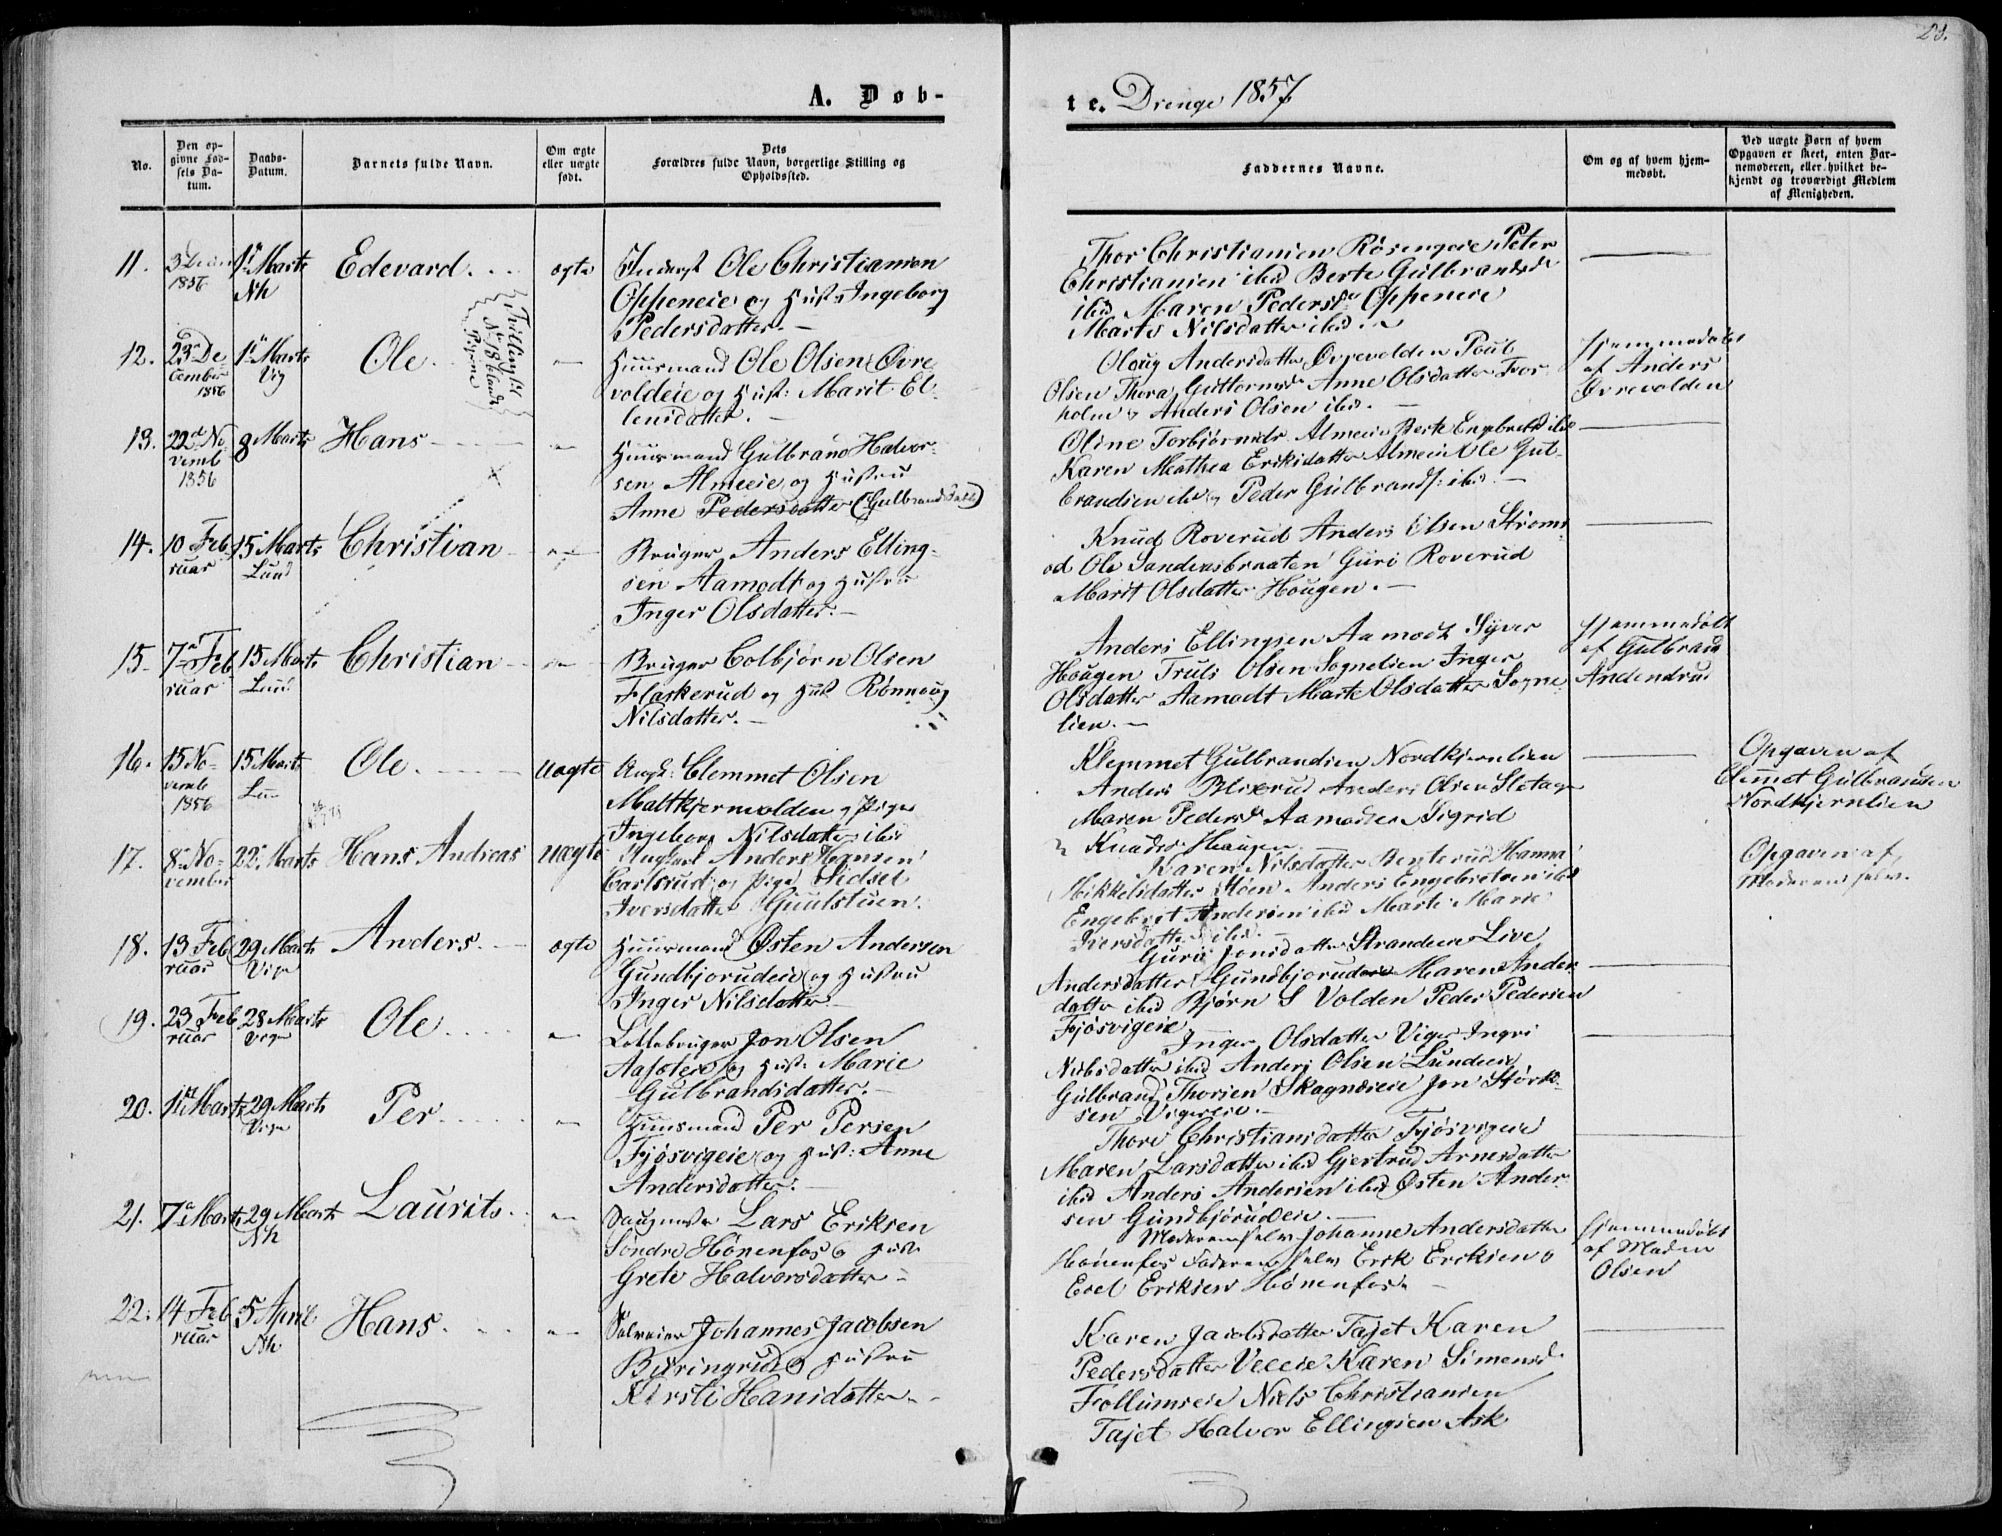 23.
A. Døb-
te. Drenge 1857
No.
Den op-
givne Fød-
sels Da-
tum.
Daabs-
Datum.
Barnets fulde Navn.
Om ægte
eller uægte
født.
Dets
Forældres fulde Navn, borgerlige Stilling og
Opholdssted.
Faddernes Navne.
Om og af hvem hjem-
medøbt.
Ved uægte Børn af hvem
Opgaven er skeet, enten Bar-
nemoderen, eller hvilket be-
kjendt og troværdigt Medlem
af Menigheden.
11. 3 1856 1 Marts Nh Edevard ægte
Ole Christiansen
Oppeneie og Hust: Ingeborg
Pedersdatter.
Thor Christiansen Rosengeie Peter
Christiansen ibid Berte Gulbrandsd
ibid Maren Pedersd Oppeneie
Marts Nilsdatter ibid
12. 23 De-
cember
1856
1 Marts
Vig
Ole
Tvilling til
No 18 blandt
Pigerne
Huusmand Ole Olsen Øvre
voldeie og Hust: Marit El-
lensdatter.
Oloug Andersdatter Øvrevolden Poul
Olsen Thora Guttormsd Anne Olsdatter For-
holm Anders Olsen ibid.
Hjemmedøbt
af Anders
Øvrevolden
13. 22 No-
vemb
1856
8 Marts
Hans
Huusmand Gulbrand Halvor-
sen Almeie og Hustru
Anne Pedersdatter (Gulbrandsdatt)
Oline Torbjørnsdr Almeie Berte Engebretsd ibid
Karen Mathea Eriksdatter Almeie Ole Gul-
brandsen ibd Peder Gulbrands: ibid.
14. 10 Feb-
ruar
15 Marts
Lund
Christian
Bruger Anders Elling-
sen Aamodt og Hustru
Inger Olsdatter.
Knud Roverud Anders Olsen Strøms-
od Ole Sandersbraaten Guri Roverud
Marit Olsdatter Hougen.
15. 7 Feb-
ruar
15 Marts
Lund
Christian
Bruger Colbjørn Olsen
Flaskerud og Hust Rønnoug
Nilsdatter.
Anders Ellingsen Aamodt Syver
Hougen Truls Olsen Sognelien Inger
Olsdatter Aamodt Marte Olsdatter Sogne-
lien.
Hjemmedøbt
af Gulbrand
Andendrud
16. 15 No-
vemb
1856
15 Marts
Ole
uægte
Ungk: Clemmet Olsen
Maltkjernvolden og Pige
Ingeborg Nilsdatter ibid
Klemmet Gulbrandsen Nordkjernlien
Anders Blixrud Anders Olsen
Maren Pedersd Aamodt Sigrid
Knudsd Haugen
Opgaven af
Clemet Gulbrandsen
Nordkjernlien
17. 8 No-
vember
22 Marts
Hans Andreas
uægte
Ungkarl Anders Hansen
Carlsrud og Pige Sidsel
Iversdatter Guulstuen.
Karen Nilsdatter Benterud Hanna
Mikkelsdatter Moen Anders Engebretsen ibd
Engebret Andersen ibid Marte Marie
Iversdatter ibid.
Opgaven af
Moderen selv.
18. 13 Feb-
ruar
29 Marts
Viger
Anders
ægte
Huusmand Østen Andersen
Gundbjørudeie og Hustru
Inger Nilsdatter
Guri Jonsdatter Strandeie Live
Andersdatter Gundbjørudeie Maren Anders-
datter ibid Bjørn S Volden Peder Pedersen
Fjøsvigeie
19. 23 Feb-
ruar
28 Marts
Viger
Ole
Jon Olsen
og Hust. Marie
Gulbrandsdatter.
Inger Olsdatter Viger Ingri
Nilsdatter ibid Anders Olsen Lundeie
Gulbrand Thorsen Skagnæseie Jon Størk-
sen Vigereie.
20. 1 Marts
29 Marts
Viger
Per
Huusmand Per Persen
Fjøsvigeie og Hust: Anne
Andersdatter.
Thore Christiansdatter Fjøsvigeie
Maren Larsdatter ibid Gjertrud Arnesdatter
ibid Anders Andersen ibid Østen Ander-
sen Gundbjørudeie.
21. 7 Marts
29 Marts
Nh
Laurits
Saugmester Lars Eriksen
Søndre Hønenfos og Hust.
Grete Halvorsdatter
Moderen selv Johanne Andersdatter
Hønenfos Faderen selv Erik Eriksen
Eriksen Hønenfos
Hjemmedøbt
af Madm
Olsen
22. 14 Feb-
ruar
5 April
Nh
Hans
Selveier Johannes Jacobsen
Busingrud og Hustru
Kirsti Hansdatter
Karen Jacobsdatter Tajet Karen
Pedersdatter Veeeie Karen Simensd
Follumseie Niels Christiansen
Tajet Halvor Ellingsen Ask